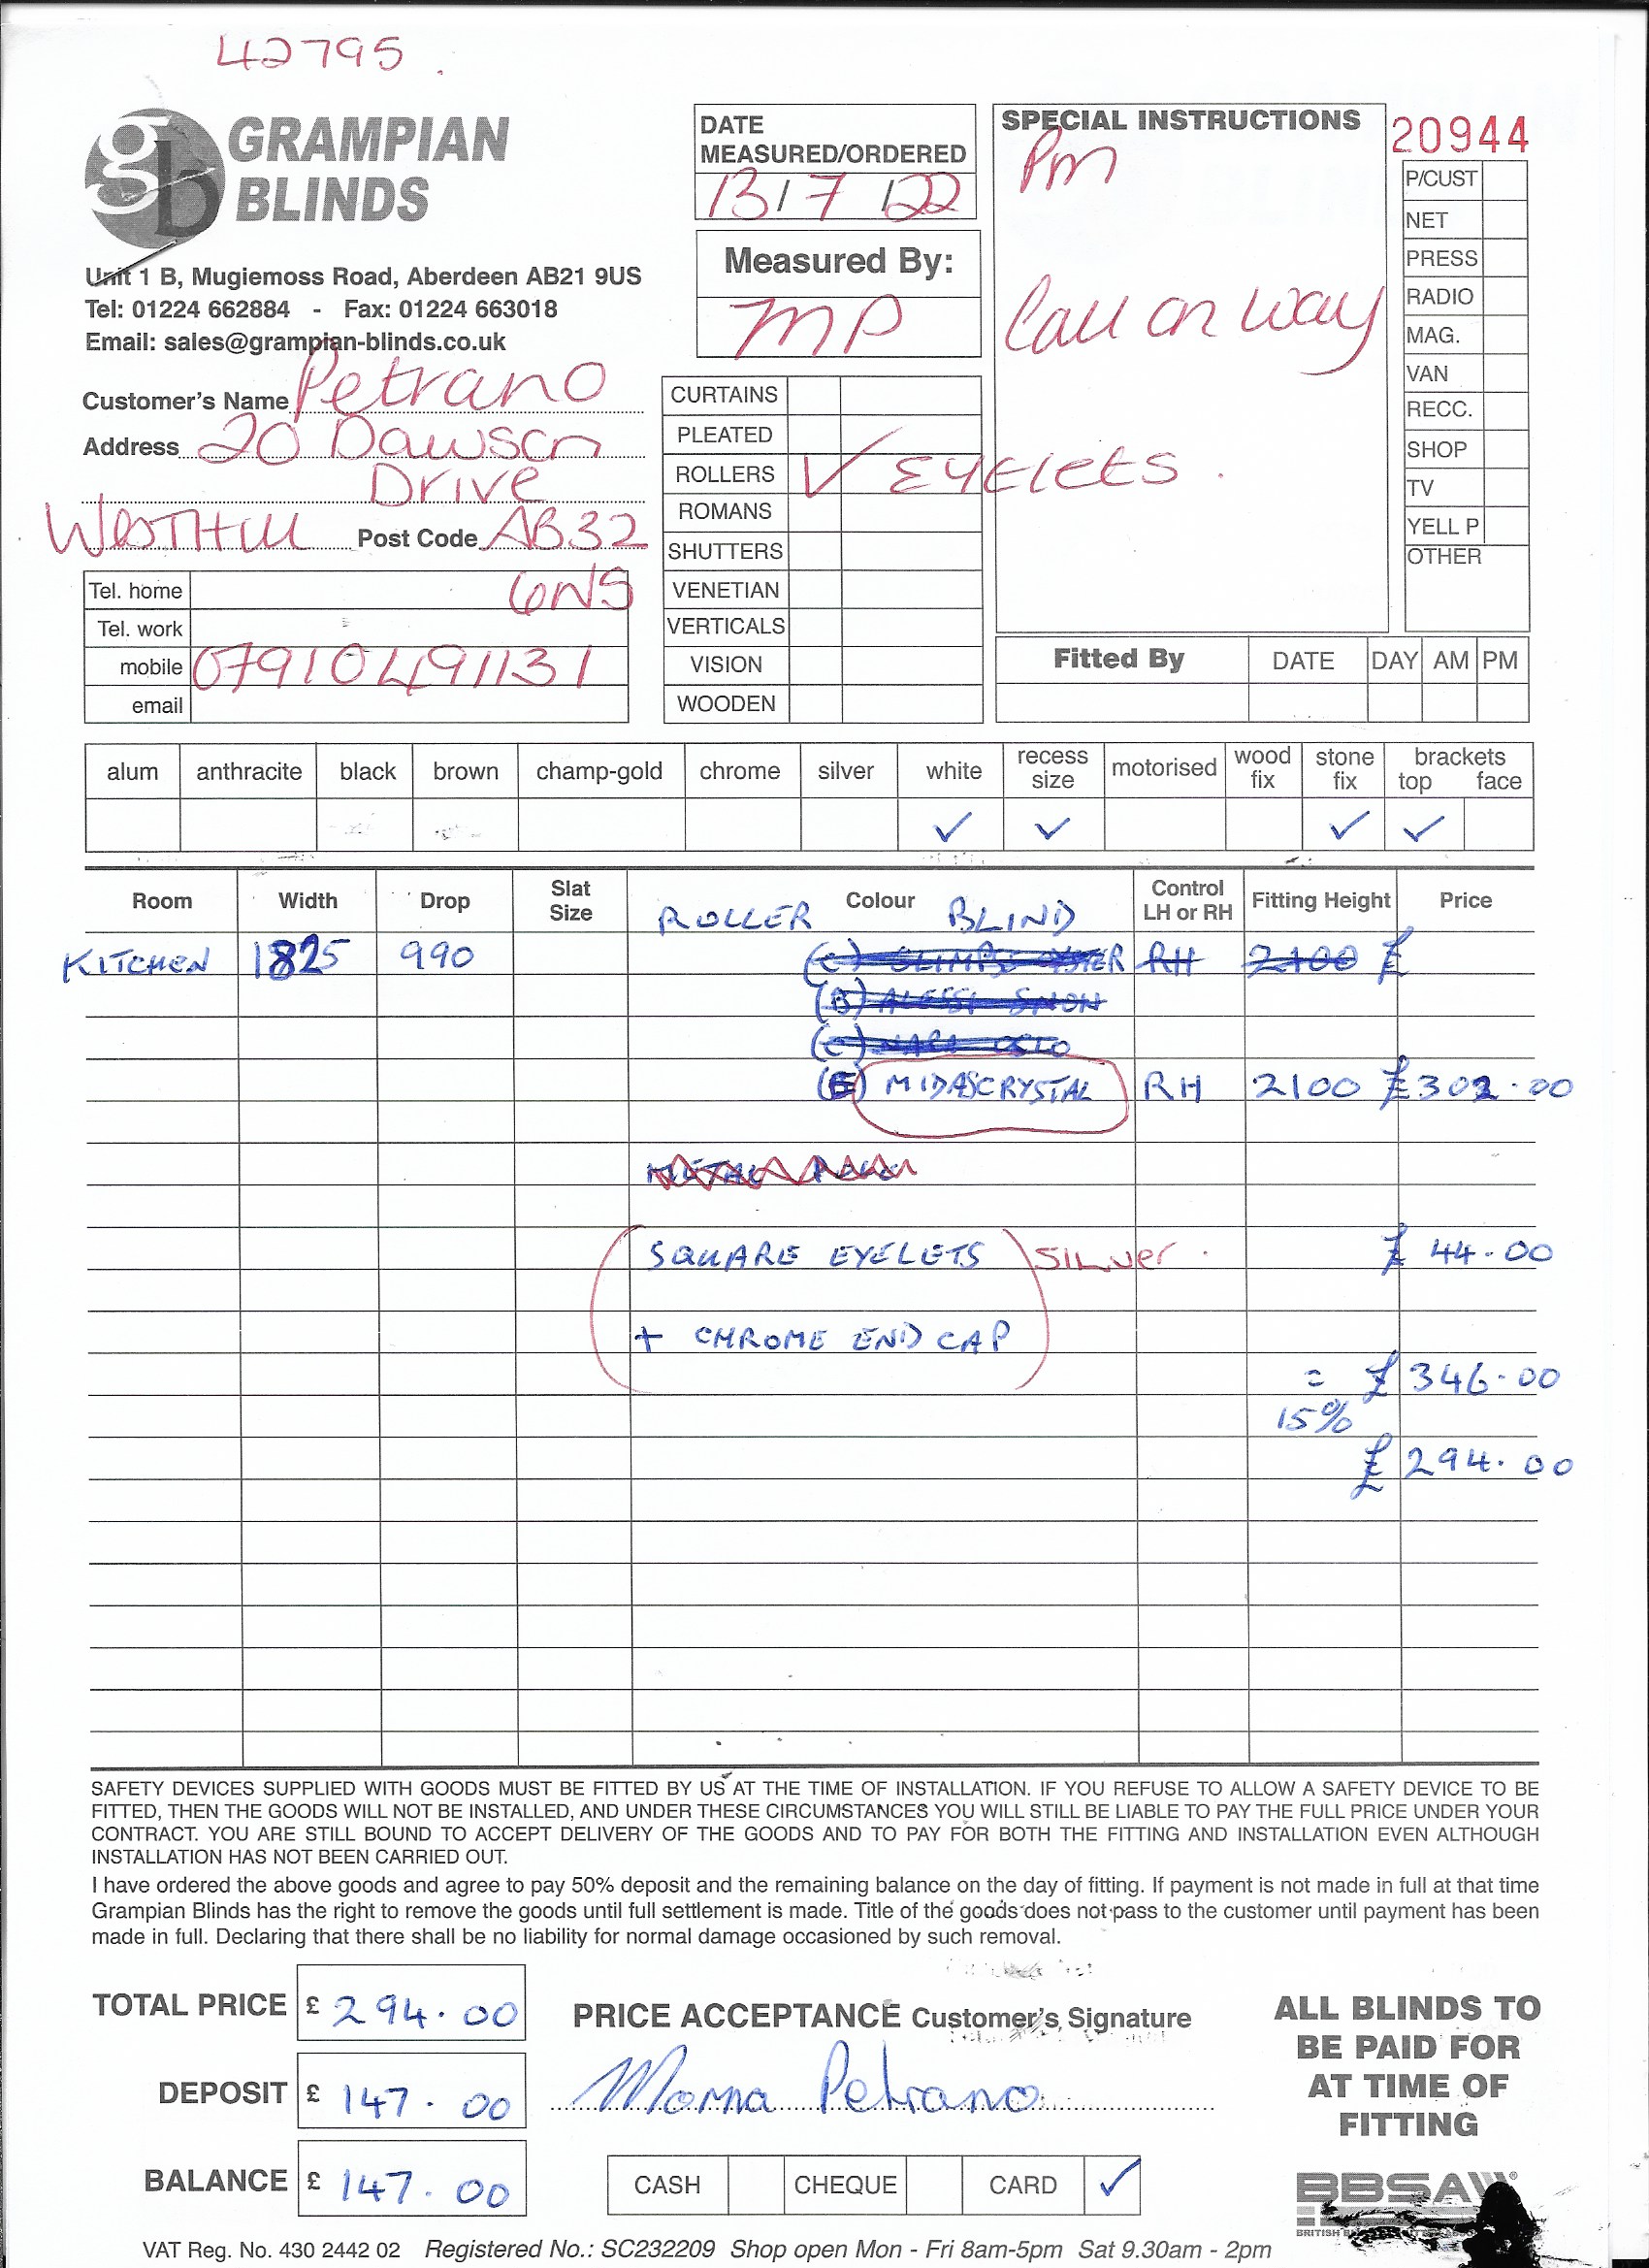 42795
GRAMPIAN
BLINDS
Unit 1 B, Mugiemoss Road, Aberdeen AB21 9US
Tel: 01224 662884 - Fax: 01224 663018
Email: sales@grampian-blinds.co.uk
Customer's Name Petrano
Address 20 Dawson
Drive
Westhill Post Code AB32
6NS
Tel. home
Tel. work
mobile 07910491131
email
DATE
MEASURED/ORDERED
13/7/22
Measured By:
MP
CURTAINS
PLEATED
ROLLERS ✓ EYElets.
ROMANS
SHUTTERS
VENETIAN
VERTICALS
VISION
WOODEN
SPECIAL INSTRUCTIONS
Pm
Call on way
20944
P/CUST
NET
PRESS
RADIO
MAG.
VAN
RECC.
SHOP
TV
YELL P
OTHER
Fitted By DATE DAY AM PM
alum anthracite black brown champ-gold chrome silver white recess size motorised wood fix stone fix brackets top face
✓ ✓ ✓ ✓
Room Width Drop Slat Size Colour Control LH or RH Fitting Height Price
ROLLER BLIND
KITCHEN 1825 990 RH 2100 £
(E) MIDASCRYSTAL RH 2100 £302.00
SQUARE EYELETS SILVer. £ 44.00
+ CHROME END CAP
= £346.00
15%
£294.00
SAFETY DEVICES SUPPLIED WITH GOODS MUST BE FITTED BY US AT THE TIME OF INSTALLATION. IF YOU REFUSE TO ALLOW A SAFETY DEVICE TO BE
FITTED, THEN THE GOODS WILL NOT BE INSTALLED, AND UNDER THESE CIRCUMSTANCES YOU WILL STILL BE LIABLE TO PAY THE FULL PRICE UNDER YOUR
CONTRACT. YOU ARE STILL BOUND TO ACCEPT DELIVERY OF THE GOODS AND TO PAY FOR BOTH THE FITTING AND INSTALLATION EVEN ALTHOUGH
INSTALLATION HAS NOT BEEN CARRIED OUT.
I have ordered the above goods and agree to pay 50% deposit and the remaining balance on the day of fitting. If payment is not made in full at that time
Grampian Blinds has the right to remove the goods until full settlement is made. Title of the goods does not pass to the customer until payment has been
made in full. Declaring that there shall be no liability for normal damage occasioned by such removal.
TOTAL PRICE £ 294.00
DEPOSIT £ 147.00
BALANCE £ 147.00
PRICE ACCEPTANCE Customer's Signature
Morna Petrano
CASH CHEQUE CARD ✓
ALL BLINDS TO
BE PAID FOR
AT TIME OF
FITTING
BBSA
BRITISH
VAT Reg. No. 430 2442 02 Registered No.: SC232209 Shop open Mon - Fri 8am-5pm Sat 9.30am - 2pm